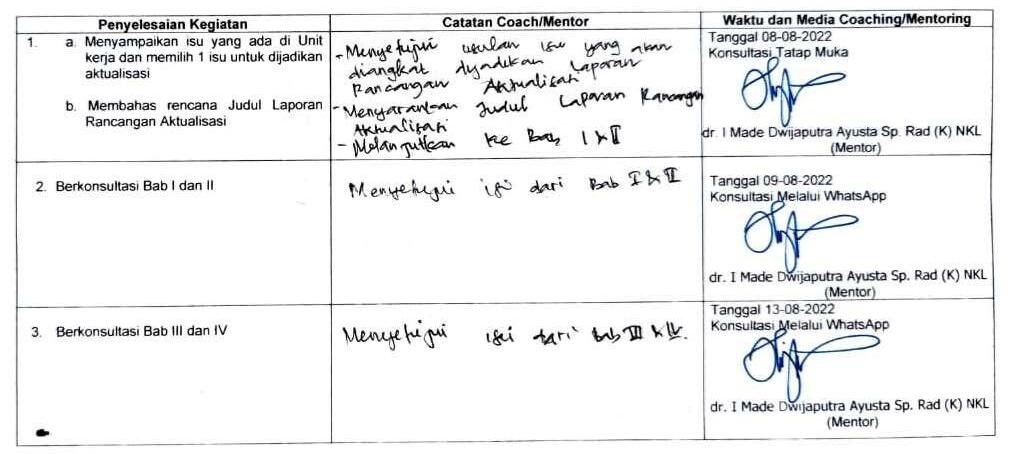 Penyelesaian Kegiatan
Catatan Coach/Mentor
Waktu dan Media Coaching/Mentoring
1. a. Menyampaikan isu yang ada di Unit
kerja dan memilih 1 isu untuk dijadikan
aktualisasi
b. Membahas rencana Judul Laporan
Rancangan Aktualisasi
- Menyetujui usulan isu yang akan
diangkat dijadikan Laporan
Rancangan Aktualisasi
- Menyarankan Judul Laporan Rancangan
Aktualisasi
- Melanjutkan ke Bab I & II
Tanggal 08-08-2022
Konsultasi Tatap Muka
dr. I Made Dwijaputra Ayusta Sp. Rad (K) NKL
(Mentor)
2. Berkonsultasi Bab I dan II
Menyetujui isi dari Bab I & II
Tanggal 09-08-2022
Konsultasi Melalui WhatsApp
dr. I Made Dwijaputra Ayusta Sp. Rad (K) NKL
(Mentor)
3. Berkonsultasi Bab III dan IV
Menyetujui isi dari Bab III & IV.
Tanggal 13-08-2022
Konsultasi Melalui WhatsApp
dr. I Made Dwijaputra Ayusta Sp. Rad (K) NKL
(Mentor)